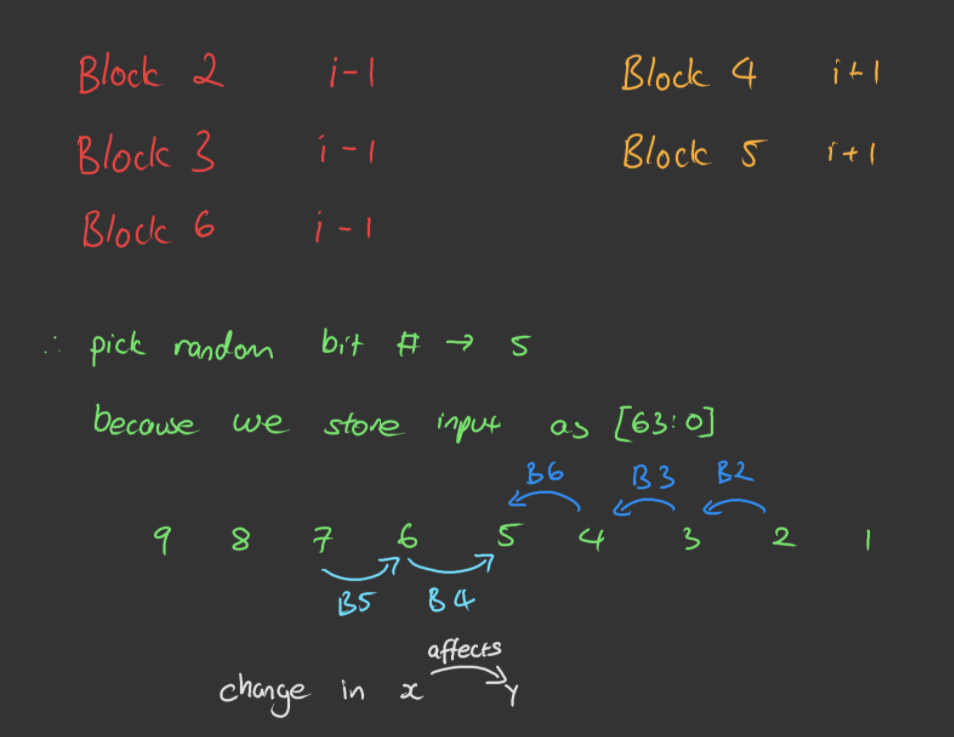 Block 2 i-1 Block 4 i+1
Block 3 i-1 Block 5 i+1
Block 6 i-1
∴ pick random bit # → 5
because we store input as [63:0]
B6 B3 B2
9 8 7 6 5 4 3 2 1
B5 B4
affects
change in x → y